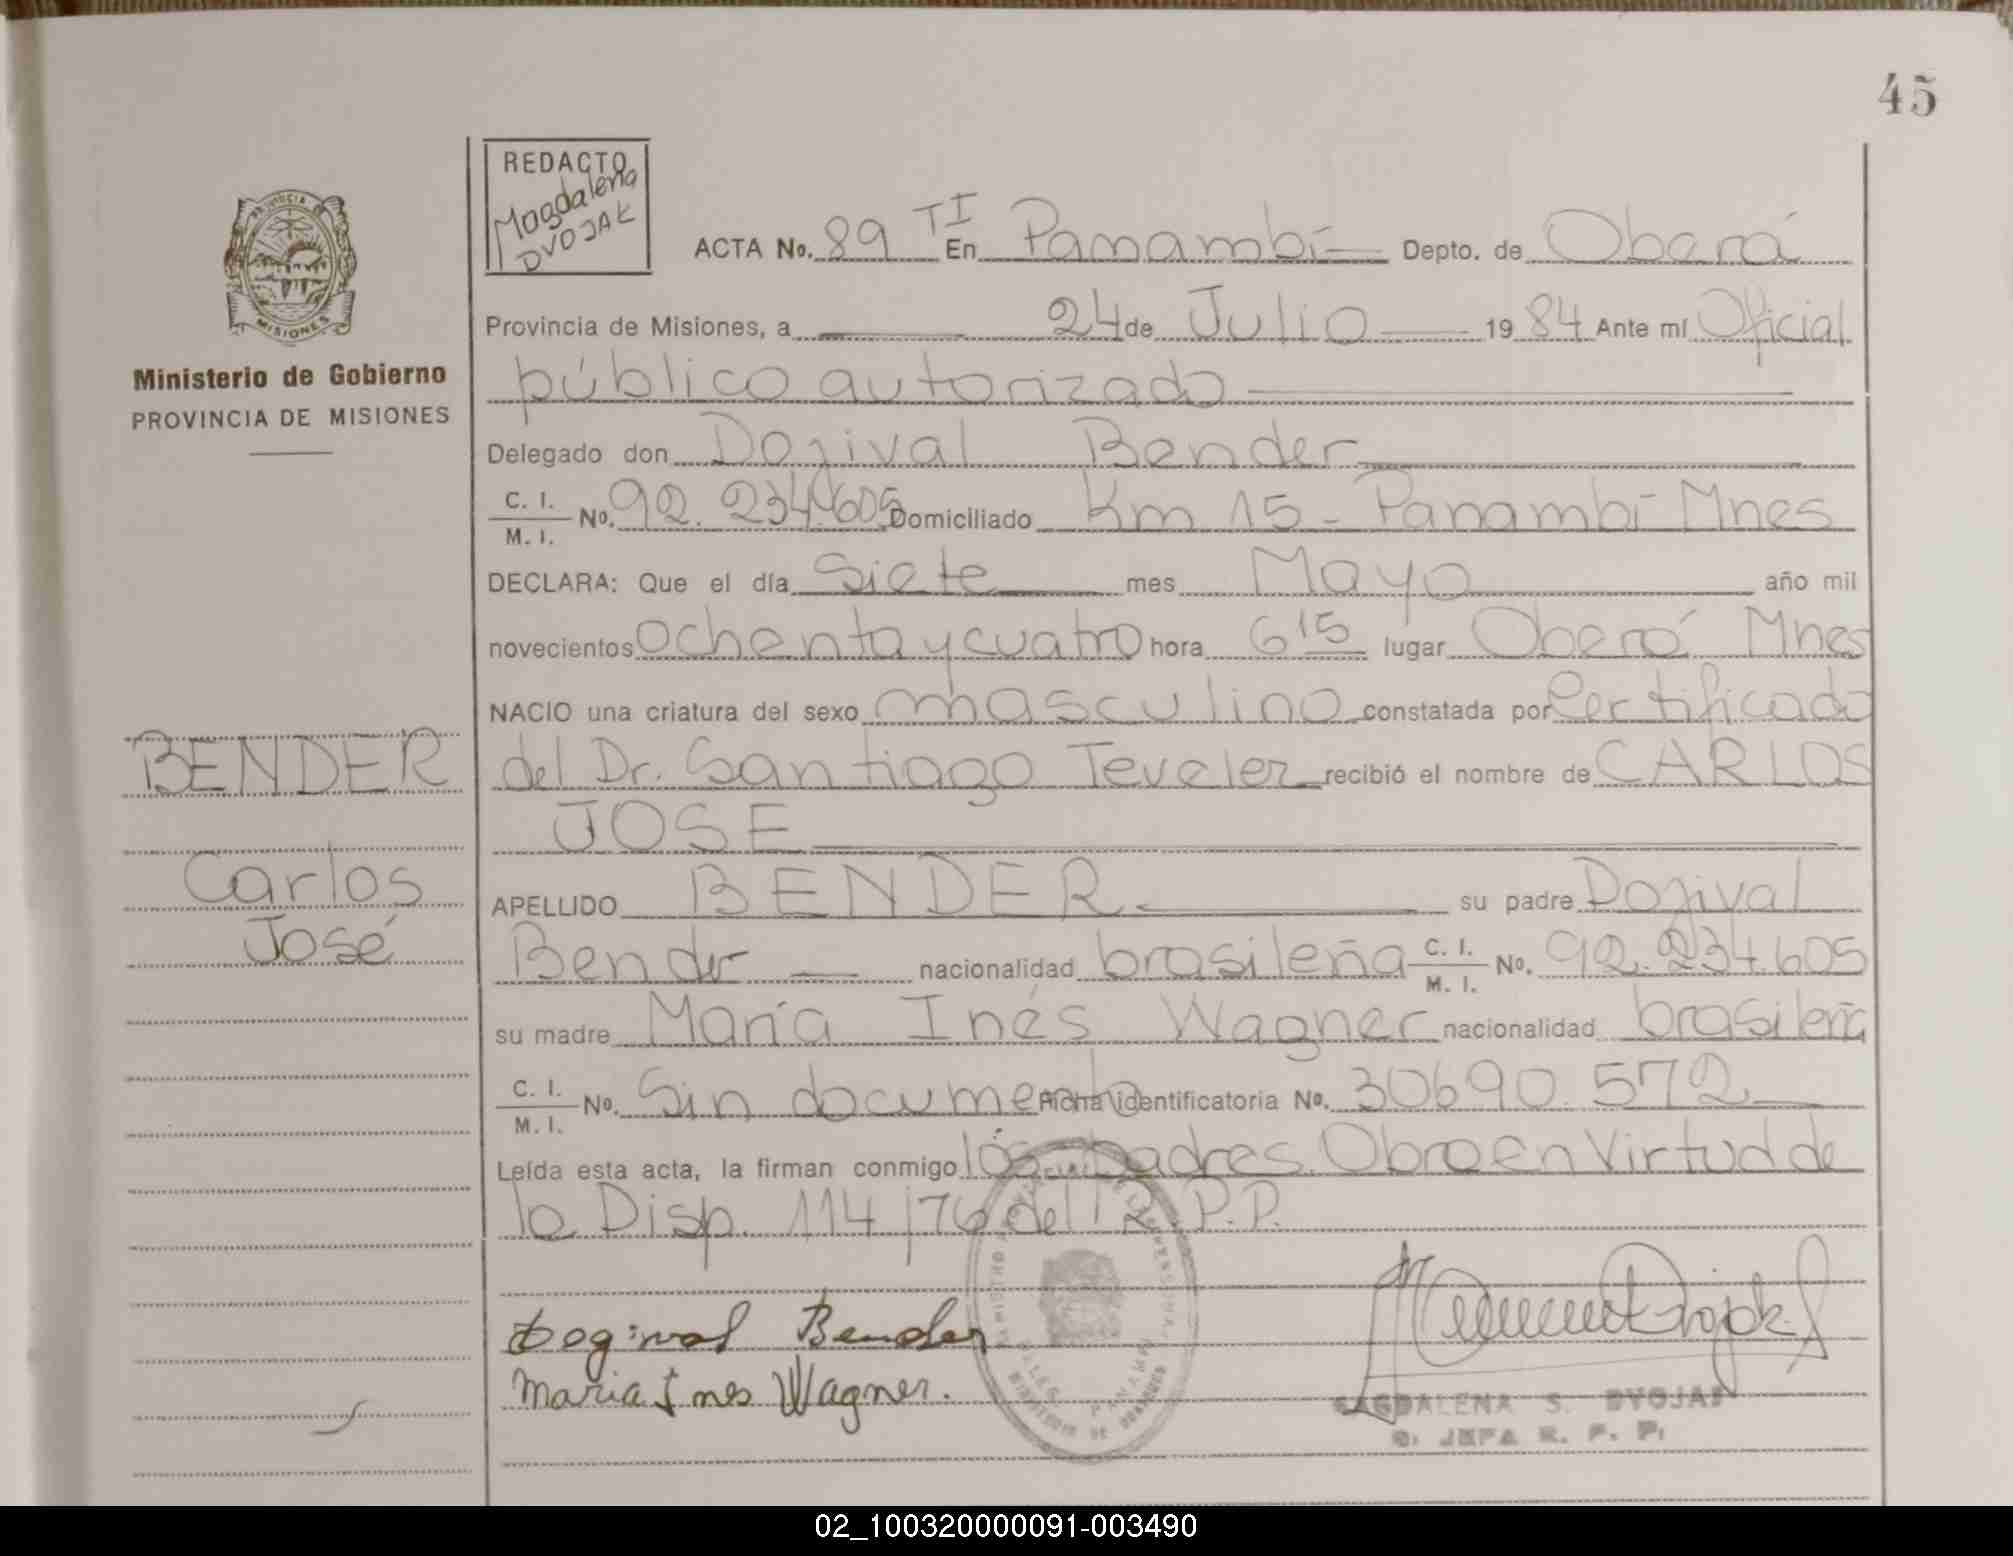 45
REDACTO
Magdalena
DVOJAK
PROVINCIA DE
MISIONES
Ministerio de Gobierno
PROVINCIA DE MISIONES
ACTA No. 89 TI En Panambí Depto. de Oberá
Provincia de Misiones, a 24 de Julio 1984 Ante mí Oficial
público autorizado
Delegado don Dojival Bender
C. I. M. I. No. 92.234.605 Domiciliado Km 15 - Panambí Mnes
DECLARA: Que el día siete mes Mayo año mil
novecientos ochenta y cuatro hora 6 15 lugar Oberá Mnes
NACIO una criatura del sexo masculino constatada por Certificado
del Dr. Santiago Teveler recibió el nombre de CARLOS
JOSE
BENDER
Carlos
José
APELLIDO BENDER su padre Dojival
Bender nacionalidad brasileña C. I. M. I. No. 92.234.605
su madre María Inés Wagner nacionalidad brasileña
C. I. M. I. No. Sin documento Ficha identificatoria No. 30690.572
Leída esta acta, la firman conmigo los padres. Obro en Virtud de
la Disp. 114/76 del R.P.P.
Dogival Bender
Maria Ines Wagner.
MAGDALENA S. DVOJAK
JEFA R. P. P.
02_100320000091-003490